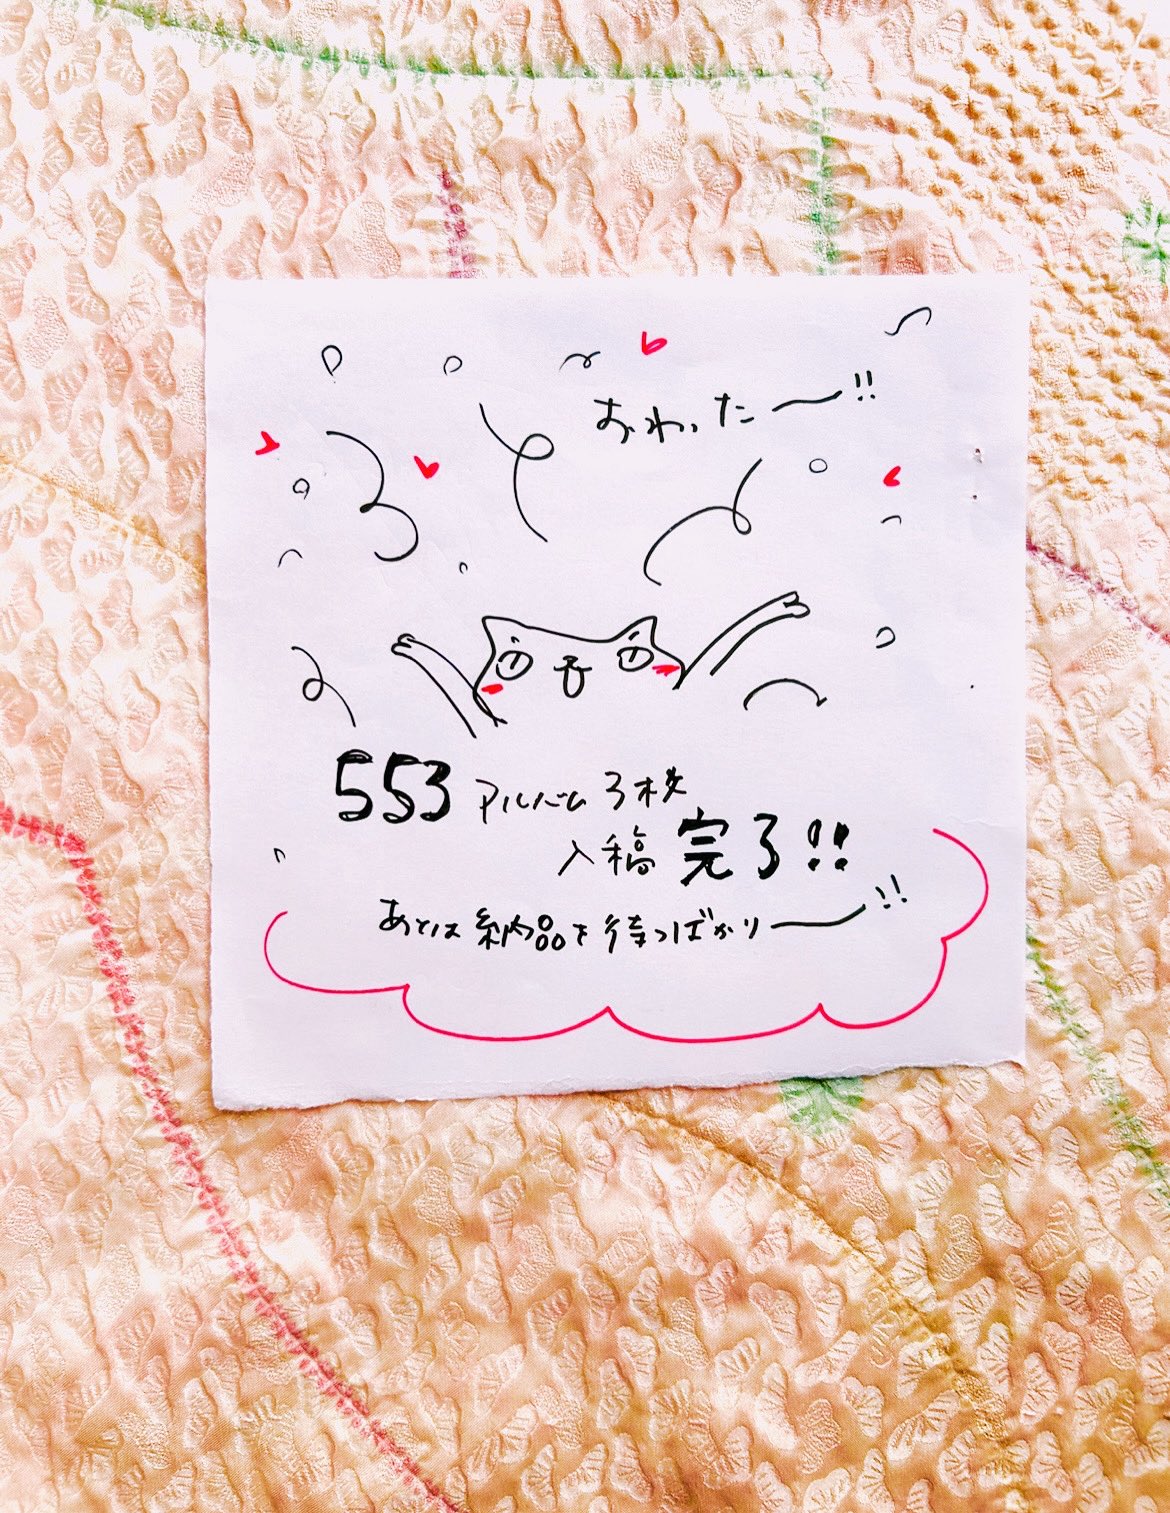 おわったー!!
553 アルバム3枚
入稿 完了!!
あとは納品を待つばかりー!!